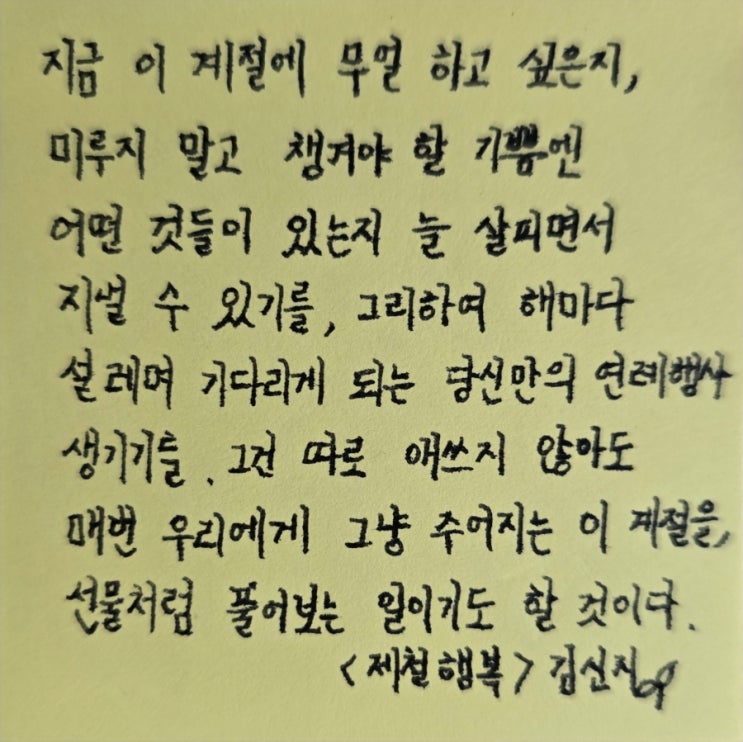 지금 이 계절에 무얼 하고 싶은지,
미루지 말고 챙겨야 할 기쁨엔
어떤 것들이 있는지 늘 살피면서
지낼 수 있기를, 그리하여 해마다
설레며 기다리게 되는 당신만의 연례행사
생기기를. 그건 따로 애쓰지 않아도
매번 우리에게 그냥 주어지는 이 계절을,
선물처럼 풀어보는 일이기도 할 것이다.
<제철 행복> 김신지